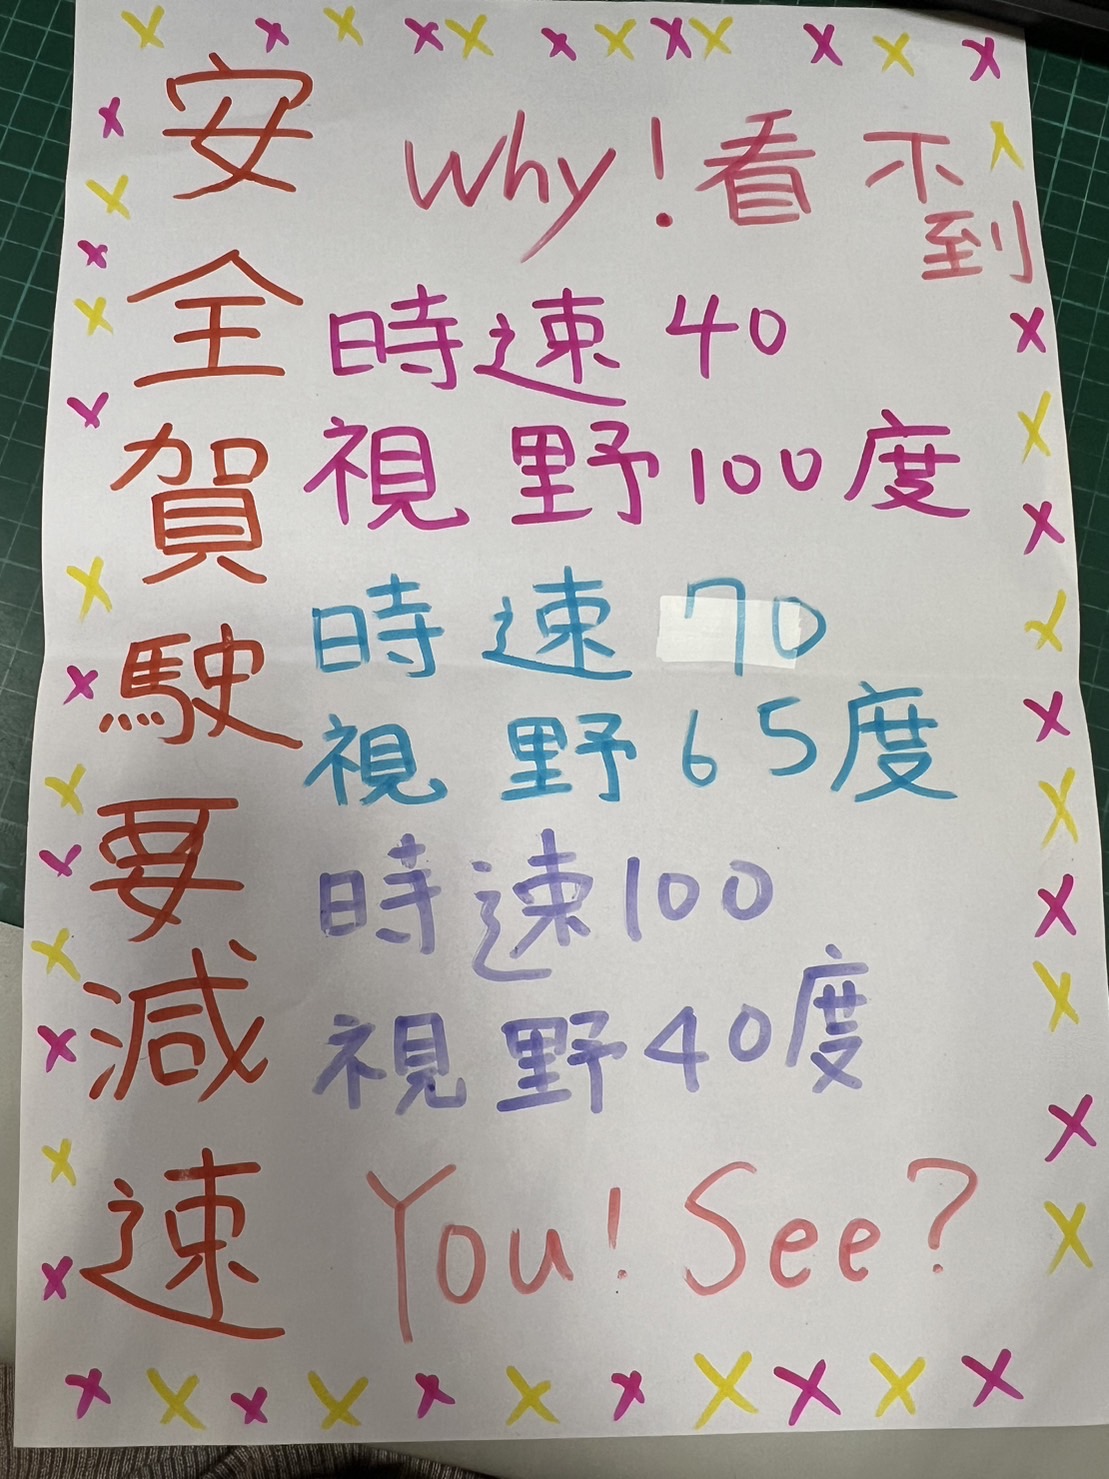 安全賀駛要減速
Why！看不到
時速40
視野100度
時速70
視野65度
時速100
視野40度
You！See？